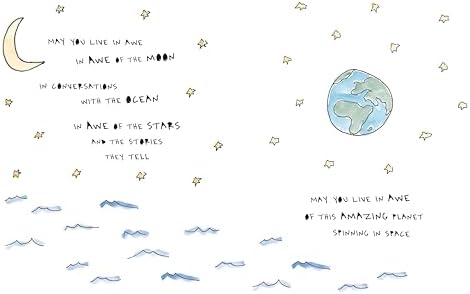 MAY YOU LIVE IN AWE
IN AWE OF THE MOON
IN CONVERSATIONS
WITH THE OCEAN
IN AWE OF THE STARS
AND THE STORIES
THEY TELL
MAY YOU LIVE IN AWE
OF THIS AMAZING PLANET
SPINNING IN SPACE